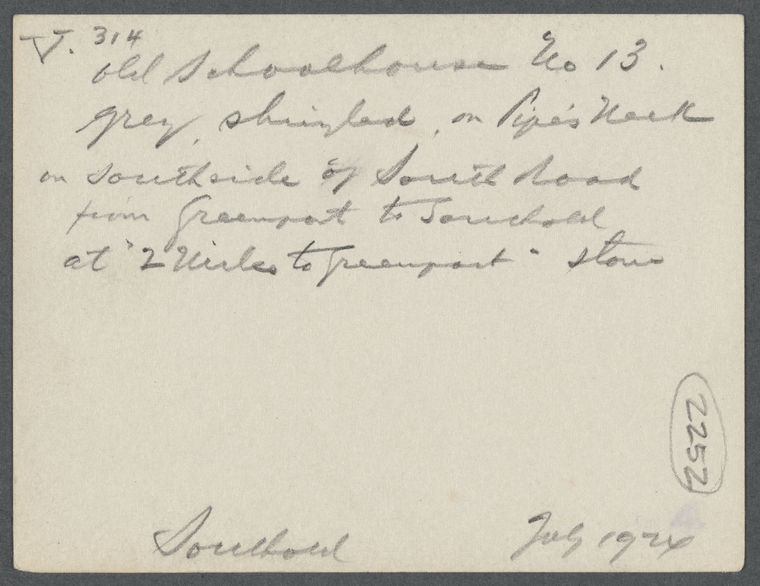 V. 314
Old Schoolhouse No 13.
grey, shingled, on Pipe's Neck
on southside of South Road
from Greenport to Southold
at "2 Miles to Greenport" stone
2252
Southold July 1924